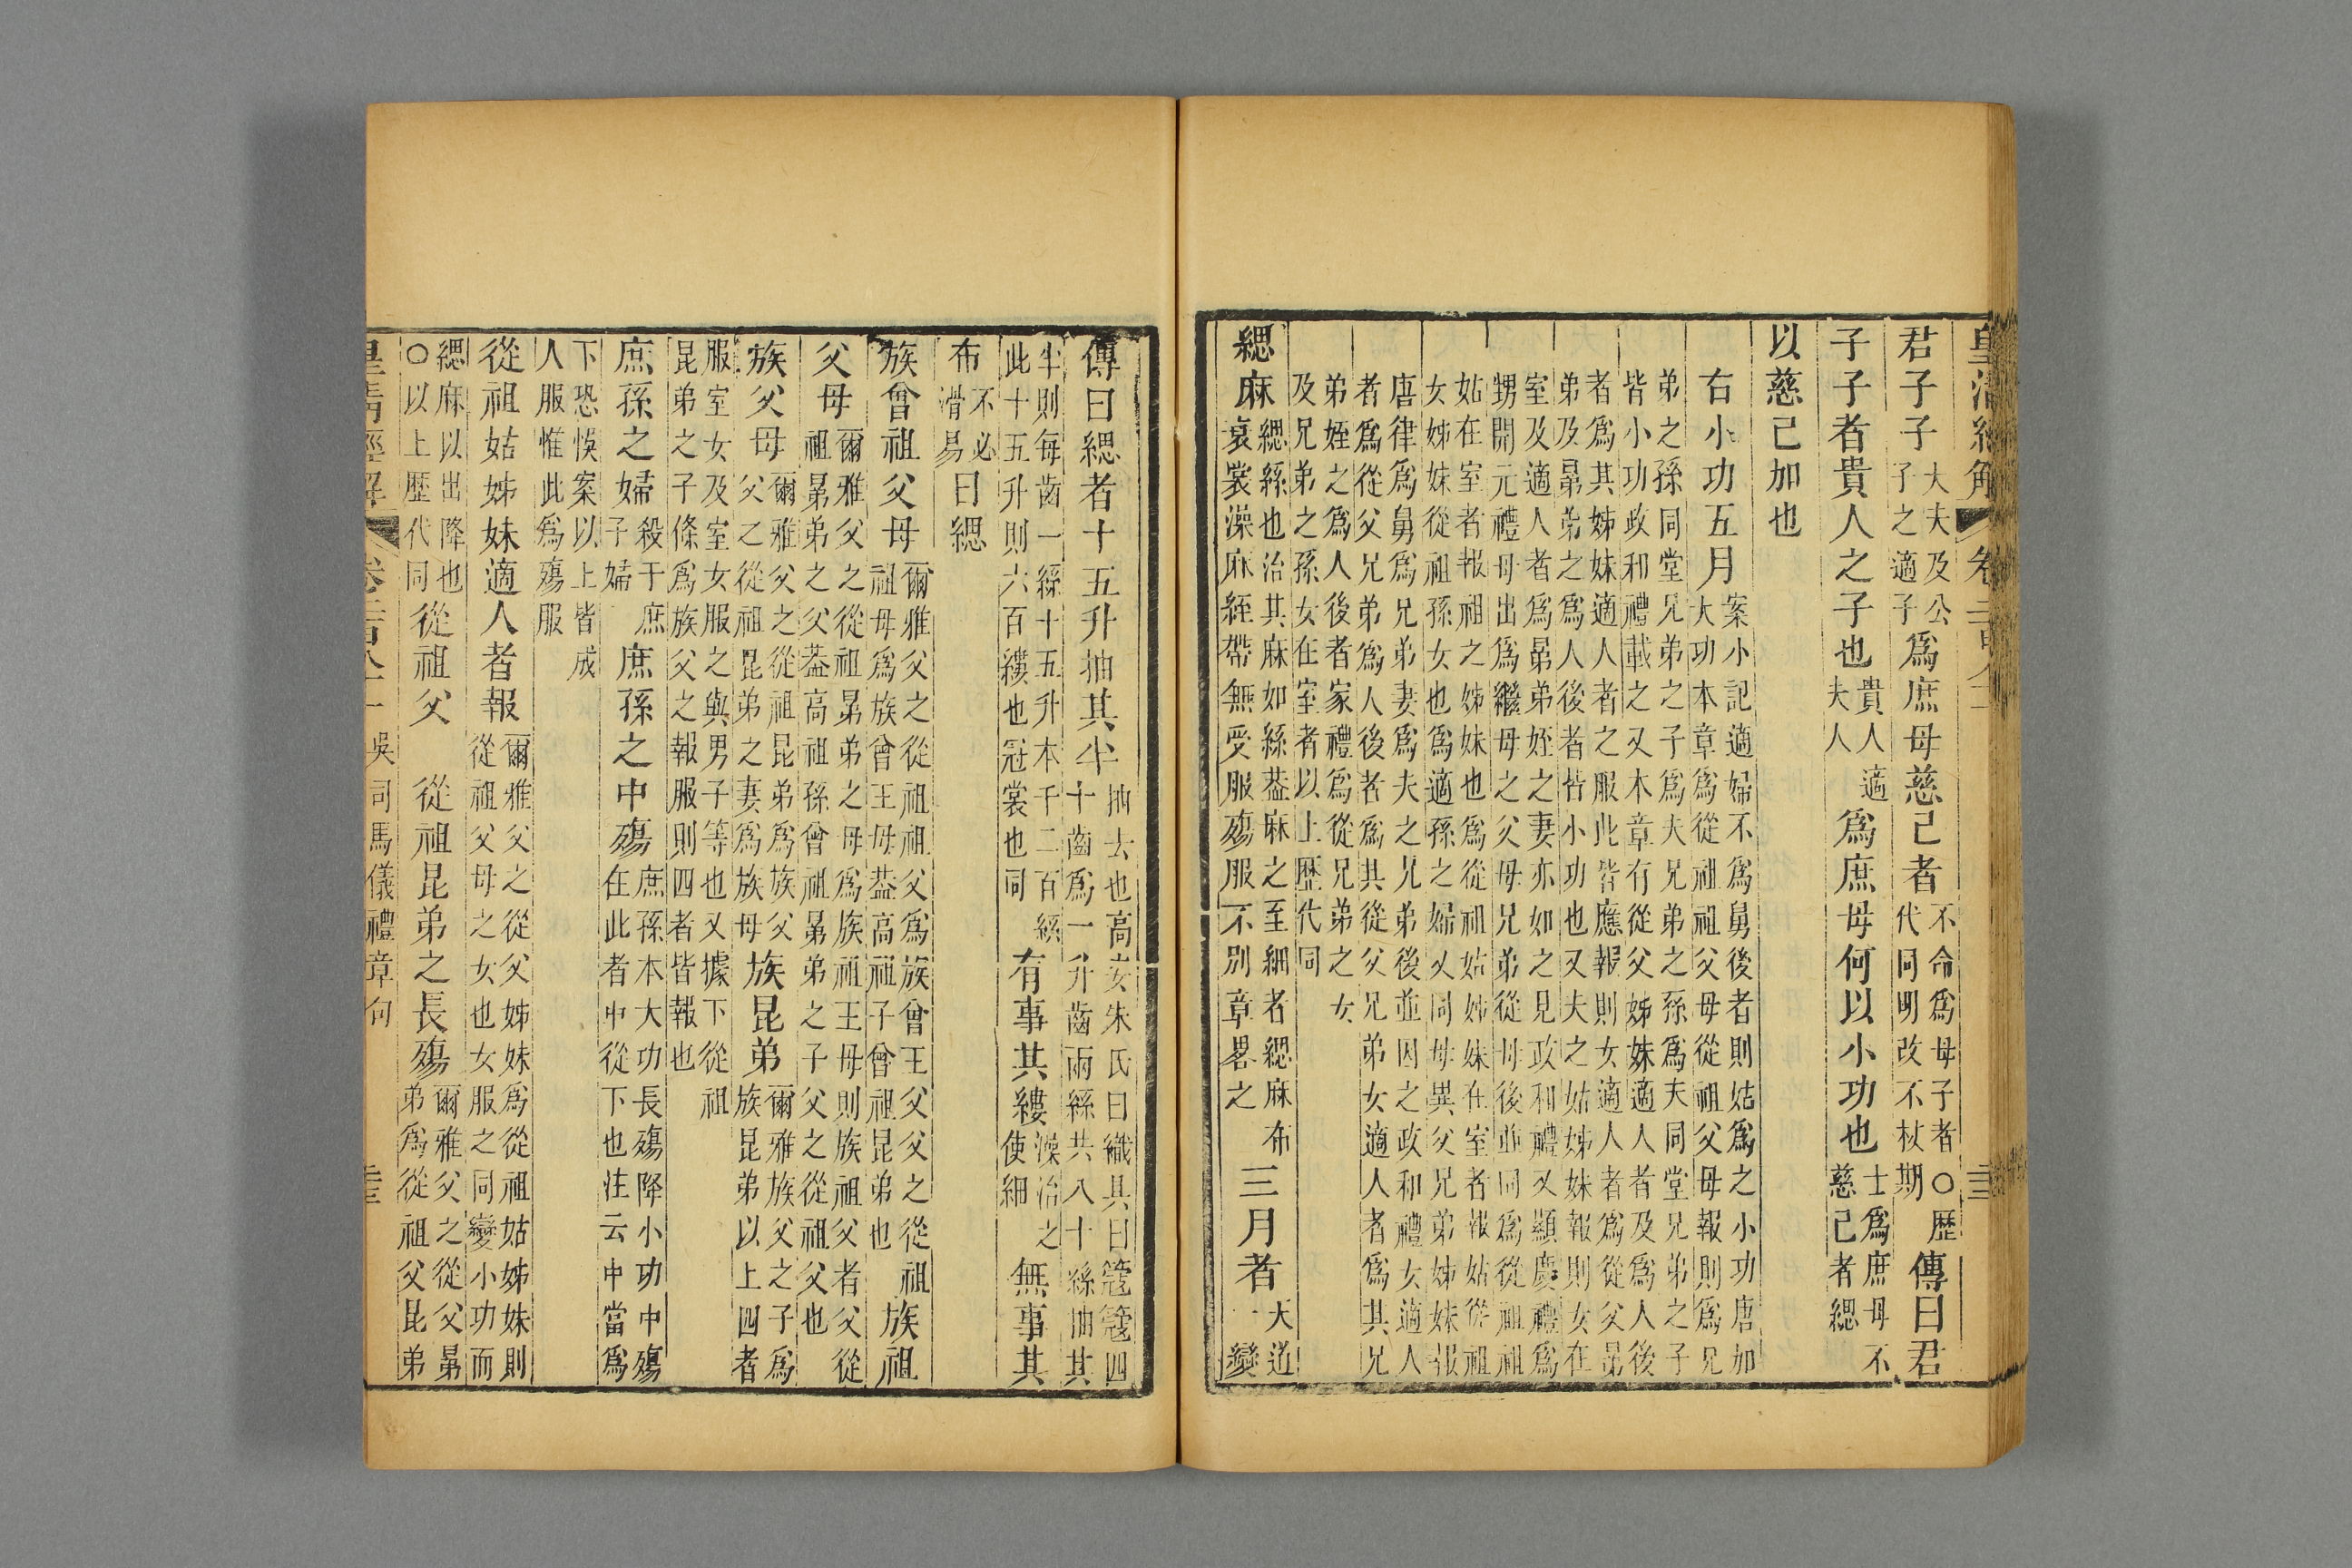 皇清經解 卷二百八十一 三三
君子子大夫及公子之適子爲庶母慈己者不命爲母子者○歷代同明改不杖期傳曰君
子子者貴人之子也貴人適夫人爲庶母何以小功也士爲庶母不慈己者緦
以慈己加也
右小功五月案小記適婦不爲舅後者則姑爲之小功唐加大功本章爲從祖祖父母從祖父母報則爲兄
弟之孫同堂兄弟之子爲夫兄弟之孫爲夫同堂兄弟之子
皆小功政和禮載之又本章有從父姊妹適人者及爲人後
者爲其姊妹適人者之服此皆應報則女適人者爲從父昆
弟及昆弟之爲人後者皆小功也又夫之姑姊妹報則女在
室及適人者爲昆弟姪之妻亦如之見政和禮又顯慶禮爲
甥開元禮母出爲繼母之父母兄弟從母後並同爲從祖祖
姑在室者報祖之姊妹也爲從祖姑姊妹在室者報姑從祖
女姊妹從祖孫女也爲適孫之婦又同母異父兄弟姊妹報
唐律爲舅爲兄弟妻爲夫之兄弟後並因之政和禮女適人
者爲從父兄弟爲人後者爲其從父兄弟女適人者爲其兄
弟姪之爲人後者家禮爲從兄弟之女
及兄弟之孫女在室者以上歷代同
緦麻緦絲也治其麻如絲葢麻之至細者緦麻布衰裳澡麻絰帶無受服殤服不別章畧之三月者天道一變
傳曰緦者十五升抽其半抽去也高安朱氏曰織具曰簆簆四十齒爲一升齒兩絲共八十絲抽其
半則每齒一絲十五升本千二百絲此十五升則六百縷也冠裳也同有事其縷澡治之使細無事其
布不必滑易曰緦
族曾祖父母爾雅父之從祖祖父爲族曾王父父之從祖祖母爲族曾王母葢高祖子曾祖昆弟也族祖
父母爾雅父之從祖昆弟之母爲族祖王母則族祖父者父從祖昆弟之父葢高祖孫曾祖昆弟之子父之從祖父也
族父母爾雅父之從祖昆弟爲族父父之從祖昆弟之妻爲族母族昆弟爾雅族父之子爲族昆弟以上四者
服室女及室女服之與男子等也又據下從祖昆弟之子條爲族父之報服則四者皆報也
庶孫之婦殺于庶子婦庶孫之中殤庶孫本大功長殤降小功中殤在此者中從下也注云中當爲
下恐悞案以上皆成人服惟此爲殤服
從祖姑姊妹適人者報爾雅父之從父姊妹爲從祖姑姊妹則從祖父母之女也女服之同變小功而
緦麻以出降也○以上歷代同從祖父 從祖昆弟之長殤爾雅父之從父昆弟爲從祖父昆弟
皇清經解 卷二百八十一 吳司馬儀禮章句